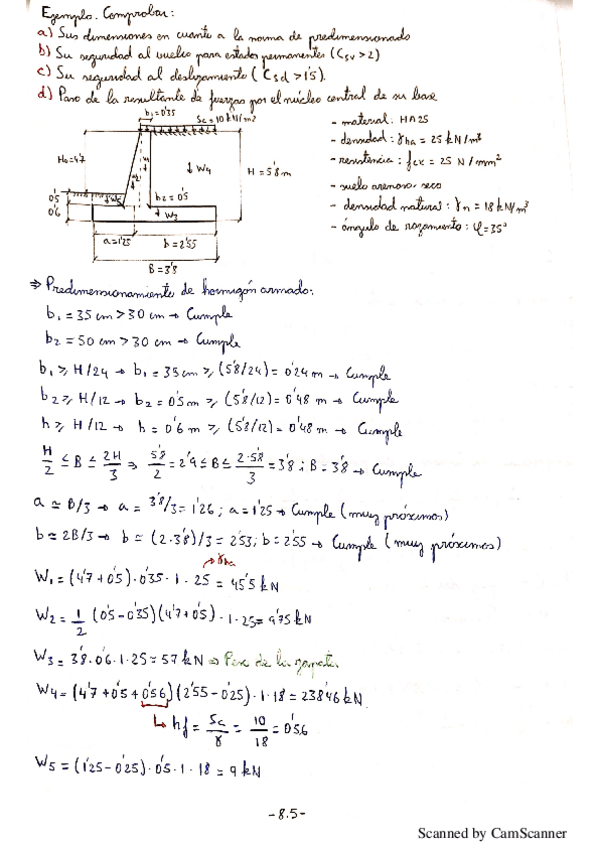 Ejemplo. Comprobar:
a) Sus dimensiones en cuanto a la norma de predimensionado
b) Su seguridad al vuelco para estados permanentes (Csv > 2)
c) Su seguridad al deslizamiento (Csd > 1'5).
d) Paso de la resultante de fuerzas por el núcleo central de su base
b₁=0'35
Sc=10kN/m²
H₀=4'7
W₄
H=5'8m
0'5
0'6
b₂=0'5
W₃
a=1'25
b=2'55
B=3'8
- material: HA25
- densidad: γha = 25 kN/m³
- resistencia: fck = 25 N/mm²
- suelo arenoso seco
- densidad natural: γn = 18 kN/m³
- ángulo de rozamiento: φ=35°
⇒ Predimensionamiento de hormigón armado:
b₁ = 35 cm > 30 cm → Cumple
b₂ = 50 cm > 30 cm → Cumple
b₁ ≥ H/24 → b₁ = 35 cm ≥ (5'8/24) = 0'24 m → Cumple
b₂ ≥ H/12 → b₂ = 0'5 m ≥ (5'8/12) = 0'48 m → Cumple
h ≥ H/12 → h = 0'6 m ≥ (5'8/12) = 0'48 m → Cumple
H/2 ≤ B ≤ 2H/3 ⇒ 5'8/2 = 2'9 ≤ B ≤ 2·5'8/3 = 3'8; B = 3'8 → Cumple
a ≃ B/3 → a = 3'8/3 = 1'26; a = 1'25 → Cumple (muy próximos)
b ≃ 2B/3 → b = (2·3'8)/3 = 2'53; b = 2'55 → Cumple (muy próximos)
γha
W₁ = (4'7 + 0'5) · 0'35 · 1 · 25 = 45'5 kN
W₂ = 1/2 (0'5 - 0'35)(4'7 + 0'5) · 1 · 25 = 9'75 kN
W₃ = 3'8 · 0'6 · 1 · 25 = 57 kN ⇒ Peso de la zapata
W₄ = (4'7 + 0'5 + 0'56)(2'55 - 0'25) · 1 · 18 = 238'46 kN
↳ hf = Sc/γ = 10/18 = 0'56
W₅ = (1'25 - 0'25) · 0'5 · 1 · 18 = 9 kN
- 8.5 -
Scanned by CamScanner